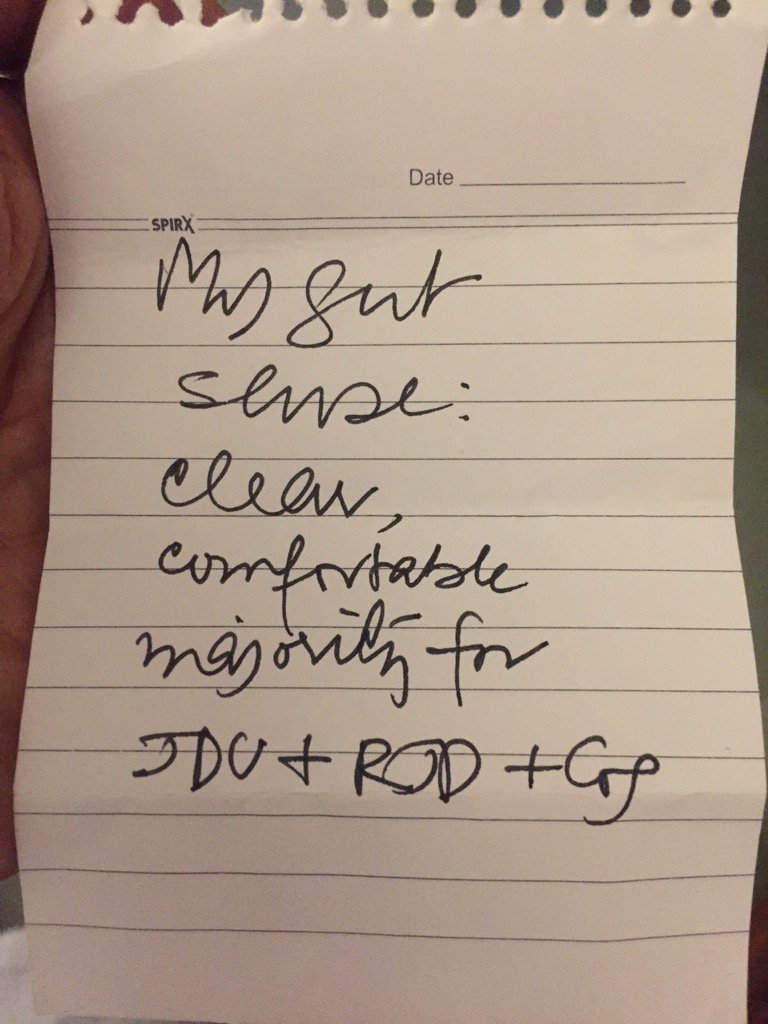 Date
SPIRX
My gut
sense:
clear,
comfortable
majority for
JDU + RJD + Cg